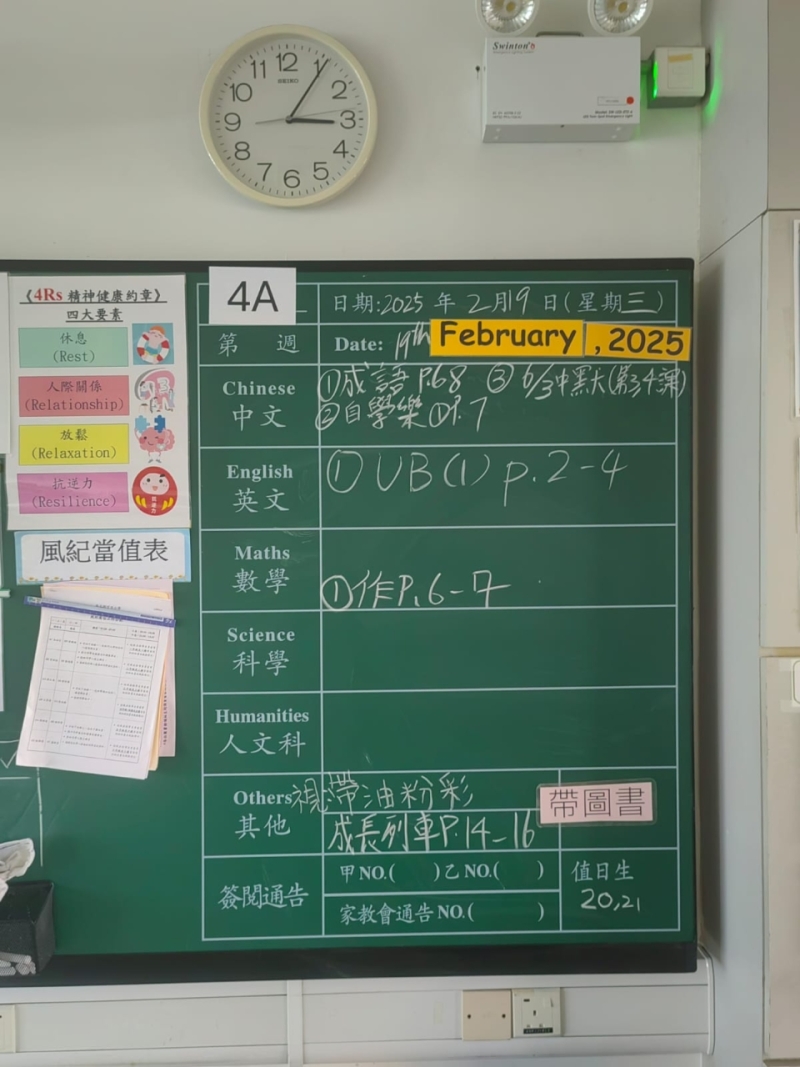 11 12 1
10 2
9 3
8 4
7 6 5
SEIKO
Swinton's
《4Rs 精神健康約章》
四大要素
休息
(Rest)
人際關係
(Relationship)
放鬆
(Relaxation)
抗逆力
(Resilience)
風紀當值表
4A
日期:2025 年 2月19 日(星期三)
第 週
Date: 19th February , 2025
Chinese
中文
①成語 P.68 ③ 6/3中默大(第3,4課)
②自學樂①P.7
English
英文
① UB(1) p.2-4
Maths
數學
①作P.6-7
Science
科學
Humanities
人文科
Others
其他
視:帶油粉彩
成長列車P.14-16
帶圖書
簽閱通告
甲NO.( )乙NO.( )
家教會通告NO.( )
值日生
20,21